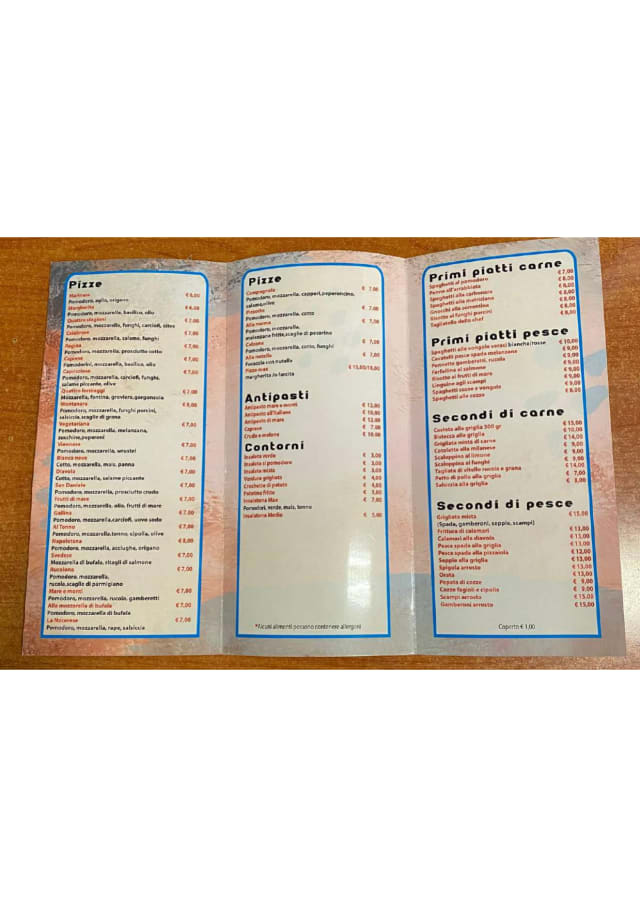 Pizze
Marinara € 5,00
Pomodoro, aglio, origano
Margherita € 6,00
Pomodoro, mozzarella, basilico, olio
Quattro stagioni € 7,00
Pomodoro, mozzarella, funghi, carciofi, olive
Calabrese € 7,00
Pomodoro, mozzarella, salame, funghi
Parma € 7,00
Pomodoro, mozzarella, prosciutto cotto
Caprese € 7,00
Pomodorini, mozzarella, basilico, olio
Capricciosa € 7,00
Pomodoro, mozzarella, carciofi, funghi,
salame piccante, olive
Quattro formaggi € 7,00
Mozzarella, fontina, groviera, gorgonzola
Montanara € 9,00
Pomodoro, mozzarella, funghi porcini,
salsiccia, scaglie di grana
Vegetariana € 7,00
Pomodoro, mozzarella, melanzana,
zucchine, peperoni
Viennese € 7,00
Pomodoro, mozzarella, wrustel
Bianca neve € 7,00
Cotto, mozzarella, mais, panna
Diavola € 7,00
Cotto, mozzarella, salame piccante
San Daniele € 7,00
Pomodoro, mozzarella, prosciutto crudo
Frutti di mare € 7,00
Pomodoro, mozzarella, olio, frutti di mare
Gallina € 7,00
Pomodoro, mozzarella, carciofi, uovo sodo
Al Tonno € 7,00
Pomodoro, mozzarella, tonno, cipolla, olive
Napoletana € 8,00
Pomodoro, mozzarella, acciughe, origano
Svedese € 7,00
Mozzarella di bufala, ritagli di salmone
Rucolana € 7,00
Pomodoro, mozzarella,
rucola, scaglie di parmigiano
Mare e monti € 7,80
Pomodoro, mozzarella, rucola, gamberetti
Alla mozzarella di bufala € 7,00
Pomodoro, mozzarella di bufala
La Nocerese € 7,00
Pomodoro, mozzarella, rape, salsiccia
Pizze
Campagnola € 7,00
Pomodoro, mozzarella, capperi, peperoncino,
salame, olive
€ 7,00
Pomodoro, mozzarella, cotto
Alla norma € 7,00
Pomodoro, mozzarella,
melanzana fritta, scaglie di pecorino
Calzone € 7,00
Pomodoro, mozzarella, cotto, funghi
Alla nutella € 7,00
Focaccia con nutella
Pizza max € 13,00/18,00
margherita /o farcita
Antipasti
Antipasto mare e monti € 13,00
Antipasto all'italiana € 10,00
Antipasto di mare € 12,00
Caprese € 7,00
Crudo e melone € 10,00
Contorni
Insalata verde € 3,00
Insalata di pomodoro € 3,00
Insalata mista € 3,00
Verdura grigliata € 4,00
Crochette di patate € 4,00
Patatine fritte € 3,00
Insalatona Max € 7,00
Pomodori, verde, mais, tonno
Insalatona Media € 5,00
*Alcuni alimenti possono contenere allergeni
Primi piatti carne
Spaghetti al pomodoro € 7,00
Penne all'arrabbiata € 8,00
Spaghetti alla carbonara € 8,00
Spaghetti alla matriciana € 8,00
Gnocchi alla sorrentina € 8,00
Risotto ai funghi porcini € 8,00
Tagliatella dello chef € 8,00
Primi piatti pesce
Spaghetti alle vongole veraci bianche/rosse € 10,00
Cavatelli pesce spada melanzane € 9,00
Pennette gamberetti, rucola € 9,00
Farfalline al salmone € 9,00
Risotto ai frutti di mare € 9,00
Linguine agli scampi € 9,00
Spaghetti cozze e vongole € 9,00
Spaghetti alle cozze € 8,00
Secondi di carne
Costata alla griglia 500 gr € 15,00
Bistecca alla griglia € 10,00
Grigliata mista di carne € 14,00
Cotoletta alla milanese € 9,00
Scaloppina al limone € 9,00
Scaloppina ai funghi € 9,00
Tagliata di vitello rucola e grana € 14,00
Petto di pollo alla griglia € 7,00
Salsiccia alla griglia € 8,00
Secondi di pesce
Grigliata mista € 15,00
(Spada, gamberoni, seppie, scampi)
Frittura di calamari € 13,00
Calamari alla diavola € 13,00
Pesce spada alla griglia € 13,00
Pesce spada alla pizzaiola € 12,00
Seppia alla griglia € 13,00
Spigola arrosto € 13,00
Orata € 13,00
Pepata di cozze € 9,00
Cozze fagioli e cipolla € 9,00
Scampi arrosto € 15,00
Gamberoni arrosto € 15,00
Coperto € 1,00